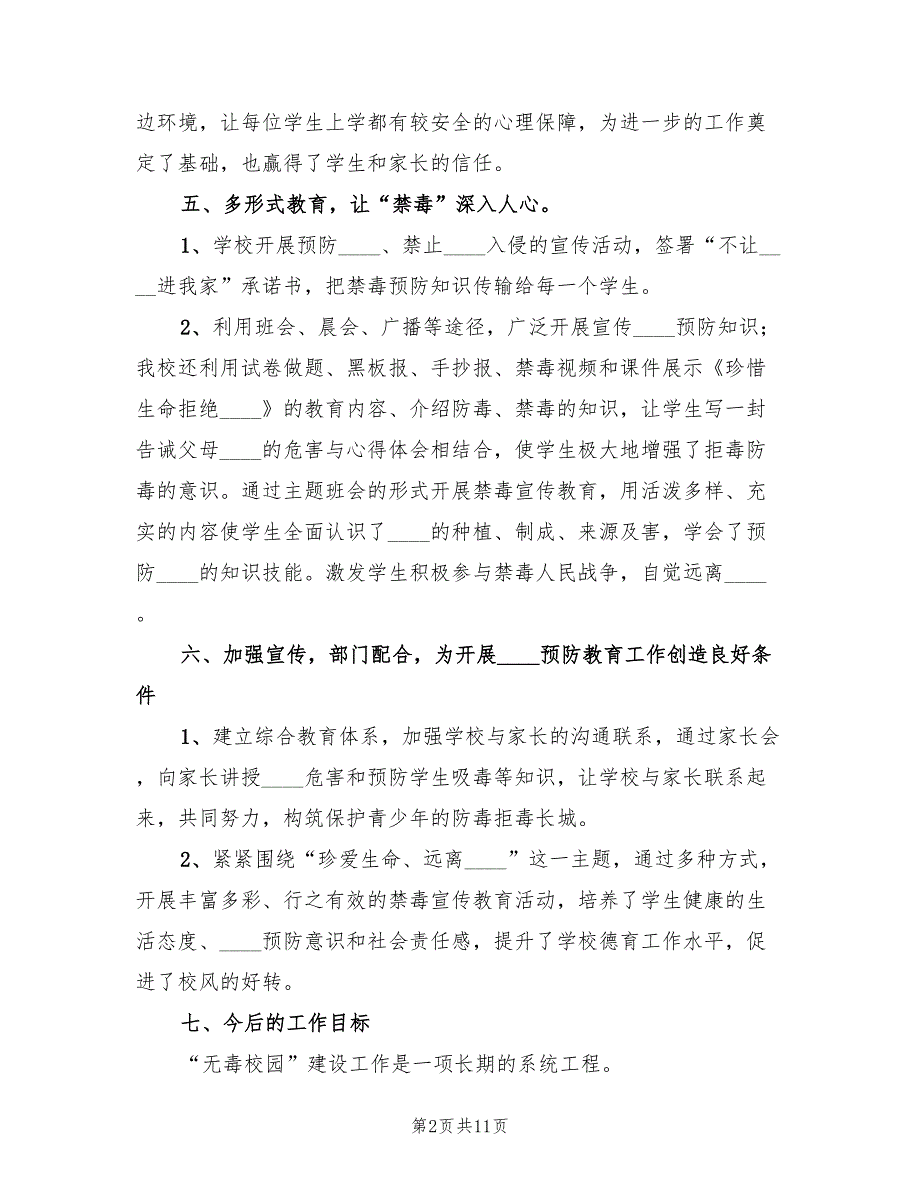 边环境，让每位学生上学都有较安全的心理保障，为进一步的工作奠
定了基础，也赢得了学生和家长的信任。
五、多形式教育，让“禁毒”深入人心。
1、学校开展预防____、禁止____入侵的宣传活动，签署“不让__
__进我家”承诺书，把禁毒预防知识传输给每一个学生。
2、利用班会、晨会、广播等途径，广泛开展宣传____预防知识；
我校还利用试卷做题、黑板报、手抄报、禁毒视频和课件展示《珍惜
生命拒绝____》的教育内容、介绍防毒、禁毒的知识，让学生写一封
告诫父母____的危害与心得体会相结合，使学生极大地增强了拒毒防
毒的意识。通过主题班会的形式开展禁毒宣传教育，用活泼多样、充
实的内容使学生全面认识了____的种植、制成、来源及害，学会了预
防____的知识技能。激发学生积极参与禁毒人民战争，自觉远离____
。
六、加强宣传，部门配合，为开展____预防教育工作创造良好条
件
1、建立综合教育体系，加强学校与家长的沟通联系，通过家长会
，向家长讲授____危害和预防学生吸毒等知识，让学校与家长联系起
来，共同努力，构筑保护青少年的防毒拒毒长城。
2、紧紧围绕“珍爱生命、远离____”这一主题，通过多种方式，
开展丰富多彩、行之有效的禁毒宣传教育活动，培养了学生健康的生
活态度、____预防意识和社会责任感，提升了学校德育工作水平，促
进了校风的好转。
七、今后的工作目标
“无毒校园”建设工作是一项长期的系统工程。
第2页共11页